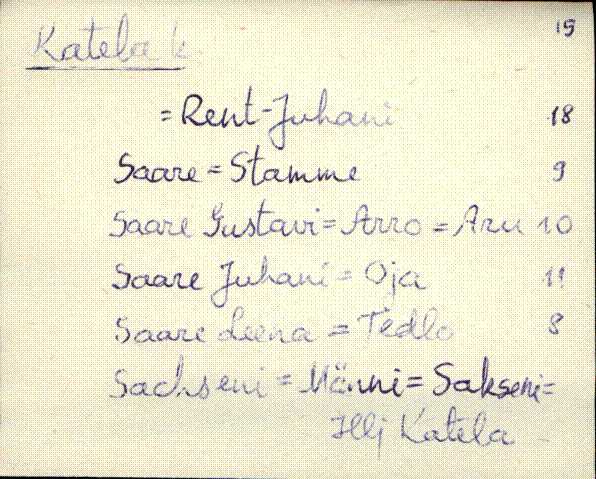 19
Katela k
= Rent-Juhani 18
Saare = Stamme 9
Saare Gustavi = Arro = Aru 10
Saare Juhani = Oja 11
Saare Leena = Tedlo 8
Sachseni = Männi = Sakseni =
Illj Katela